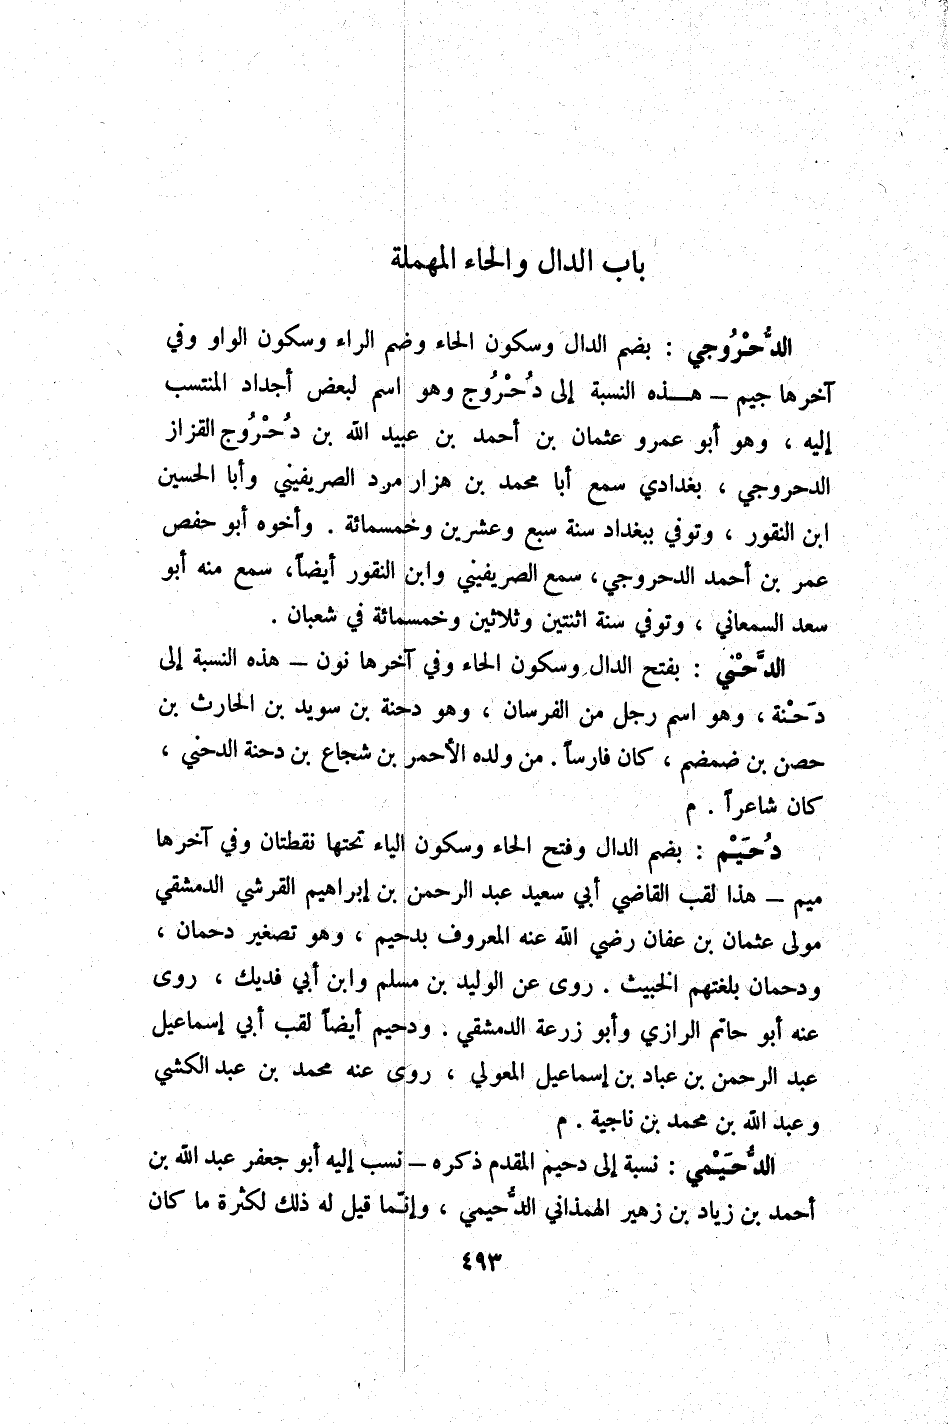 باب الدال والحاء المهملة
الدُّحْرُوجي : بضم الدال وسكون الحاء وضم الراء وسكون الواو وفي
آخرها جيم – هـذه النسبة إلى دُحْرُوج وهو اسم لبعض أجداد المنتسب
إليه ، وهو أبو عمرو عثمان بن أحمد بن عبيد الله بن دُحْرُوج القزاز
الدحروجي ، بغدادي سمع أبا محمد بن هزارمرد الصريفيني وأبا الحسين
ابن النقور ، وتوفي ببغداد سنة سبع وعشرين وخمسمائة . وأخوه أبو حفص
عمر بن أحمد الدحروجي ، سمع الصريفيني وابن النقور أيضاً ، سمع منه أبو
سعد السمعاني ، وتوفي سنة اثنتين وثلاثين وخمسمائة في شعبان .
الدَّحْني : بفتح الدال وسكون الحاء وفي آخرها نون – هذه النسبة إلى
دَحْنة ، وهو اسم رجل من الفرسان ، وهو دحنة بن سويد بن الحارث بن
حصن بن ضمضم ، كان فارساً . من ولده الأحمر بن شجاع بن دحنة الدحني ،
كان شاعراً . م
دُحَيْم : بضم الدال وفتح الحاء وسكون الياء تحتها نقطتان وفي آخرها
ميم – هذا لقب القاضي أبي سعيد عبد الرحمن بن إبراهيم القرشي الدمشقي
مولى عثمان بن عفان رضي الله عنه المعروف بدحيم ، وهو تصغير دحمان ،
ودحمان بلغتهم الخبيث . روى عن الوليد بن مسلم وابن أبي فديك ، روى
عنه أبو حاتم الرازي وأبو زرعة الدمشقي . ودحيم أيضاً لقب أبي إسماعيل
عبد الرحمن بن عباد بن إسماعيل المعولي ، روى عنه محمد بن عبد الكشي
وعبد الله بن محمد بن ناجية . م
الدُّحَيْمي : نسبة إلى دحيم المقدم ذكره – نسب إليه أبو جعفر عبد الله بن
أحمد بن زياد بن زهير الهمذاني الدُّحيمي ، وإنّما قيل له ذلك لكثرة ما كان
٤٩٣